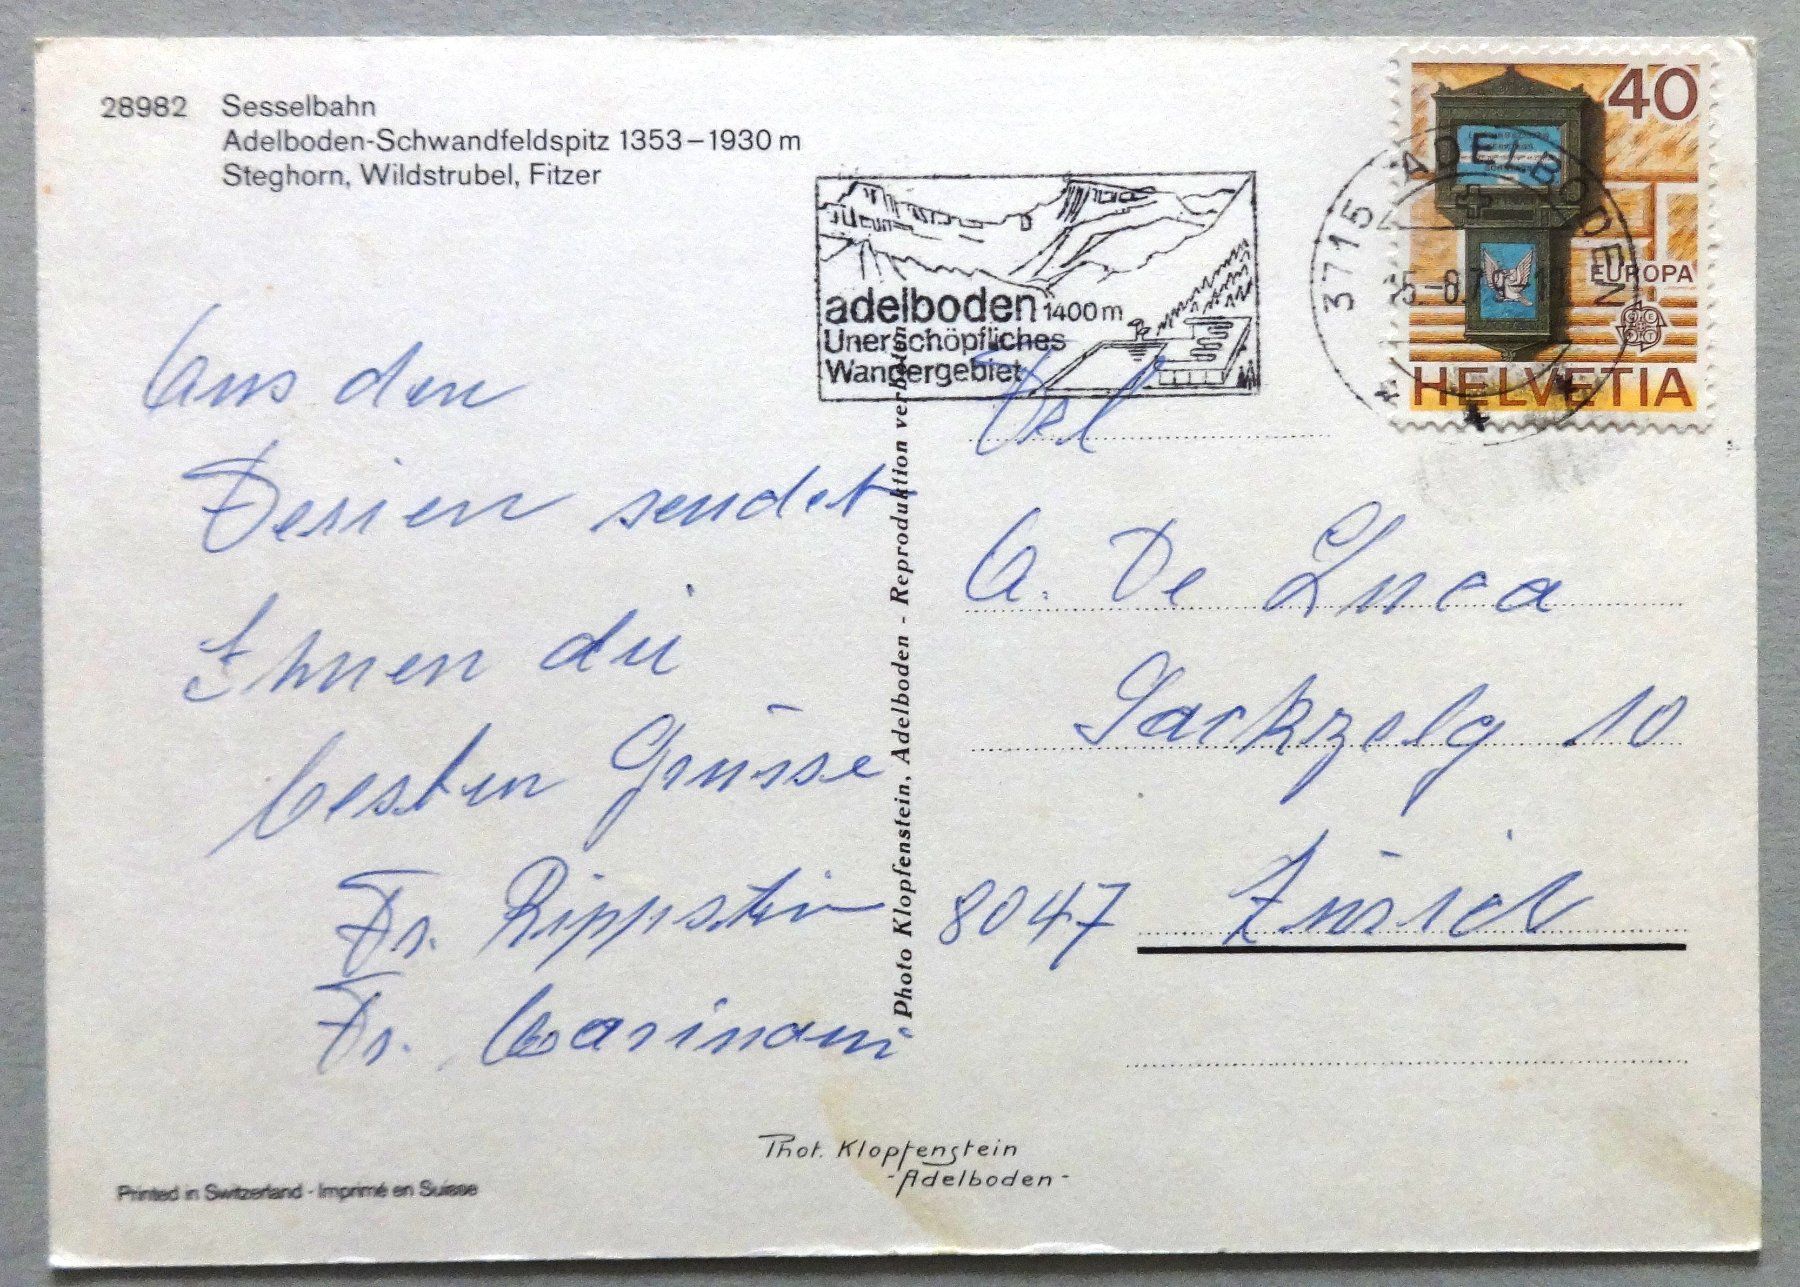 28982 Sesselbahn
Adelboden-Schwandfeldspitz 1353–1930 m
Steghorn, Wildstrubel, Fitzer
adelboden 1400 m
Unerschöpfliches
Wandergebiet
3715 ADELBODEN
-8.79
40
EUROPA
HELVETIA
Aus den
Ferien sendet
Ihnen die
besten Grüsse
Fr. Rippstein
Fr.
Photo Klopfenstein, Adelboden - Reproduktion verboten
A. De Luca
Sackzelg 10
8047 Zürich
Phot. Klopfenstein
-Adelboden-
Printed in Switzerland - Imprimé en Suisse